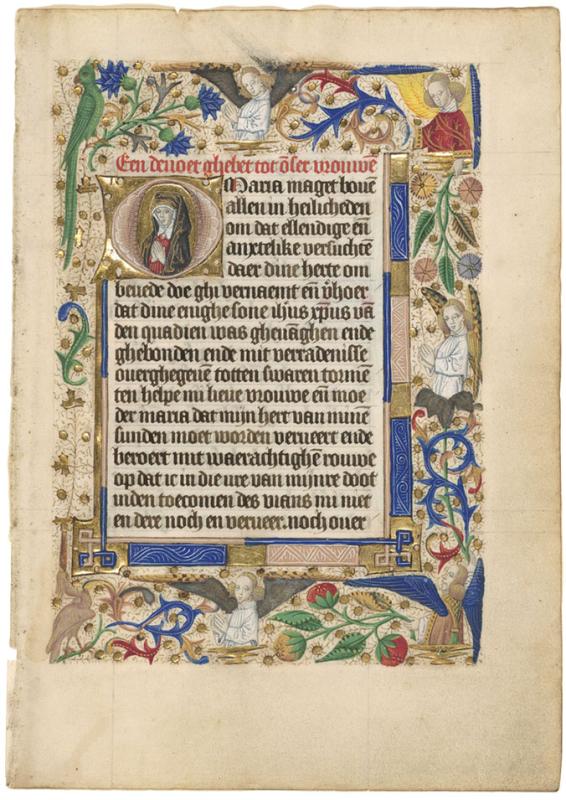 Een deuoet ghebet tot ōser vrouwē
O Maria maget bouē
allen in heilicheden
om dat ellendige eñ
anxtelike versuchtē
daer dine herte om
beuede doe ghi vernaemt eñ v̄hoer
dat dine enighe sone ih̄us xp̄us vā
den quadien was gheuāghen ende
ghebonden ende mit verradenisse
ouerghegeuē totten swaren tormē
ten helpe mi lieue vrouwe eñ moe
der maria dat mijn hert van minē
sunden moet worden verueert ende
beroert mit waerachtighē rouwe
op dat ic in die ure van mijnre doot
uiden toecomen des vians mi niet
en dere noch en verueer. noch ouer